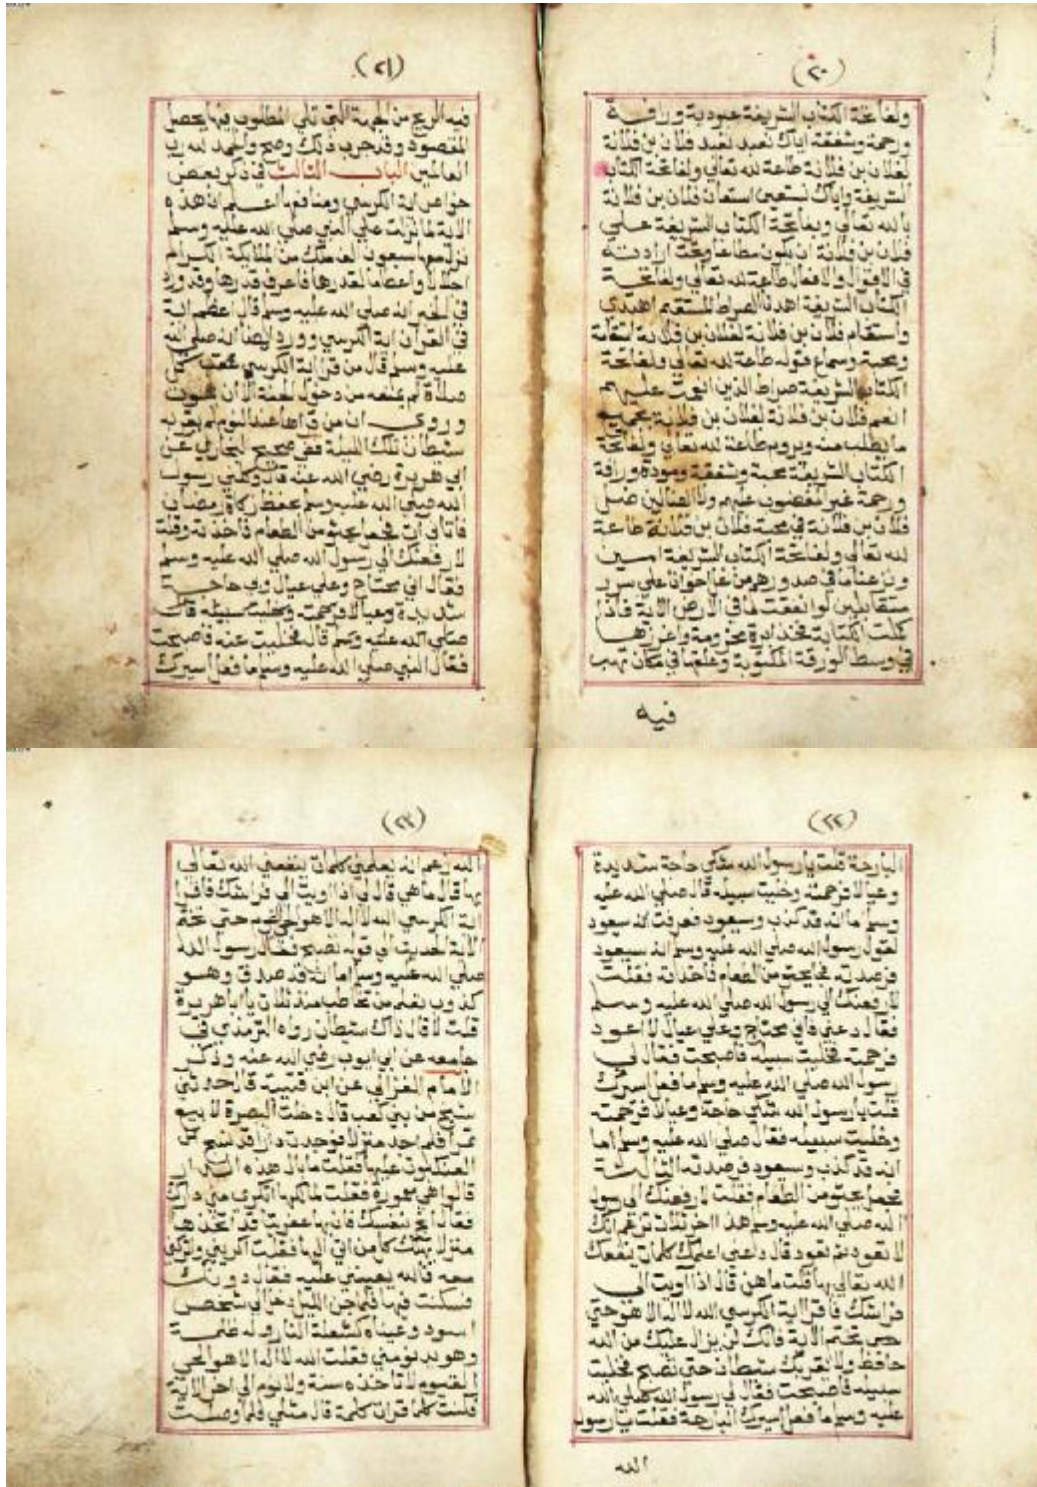 (٢٠)
ولفاتحة الكتاب الشريفة عبودية ورافة
ورحمة وشفقة اياك نعبد تعبد فلان بن فلانة
لفلان بن فلانة طاعة لله تعالي ولفاتحة الكتاب
الشريفة واياك نستعين استعان فلان بن فلانة
بالله تعالي وبفاتحة الكتاب الشريفة علي
فلان بن فلانة ان يكون مطاعا وتحت ارادته
في الاقوال والافعال طاعة لله تعالي ولفاتحة
الكتاب الشريفة اهدنا الصراط المستقيم اهتدي
واستقام فلان بن فلانة لفلان بن فلانة استقامة
ومحبة وسماع قوله طاعة لله تعالي ولفاتحة
الكتاب الشريفة صراط الذين انعمت عليهم
انعم فلان بن فلانة لفلان بن فلانة بجميع
ما يطلب منه ويرومه طاعة لله تعالي ولفاتحة
الكتاب الشريفة محبة وشفقة ومودة ورافة
ورحمة غير المغضوب عليهم ولا الضالين ضل
فلان بن فلانة في محبة فلان بن فلانة طاعة
لله تعالي ولفاتحة الكتاب الشريفة امين
ونزعنا ما في صدورهم من غل اخوانا علي سرر
متقابلين لو انفقت ما في الارض الاية فاذا
كملت الكتابة فخذ ابرة مخرومة واغرزها
في وسط الورقة المكتوبة وعلقها في مكان تهب
فيه
(٢١)
فيه الريح من الجهة التي تلي المطلوب فيها يحصل
المقصود وقد جرب ذلك وصح والحمد لله رب
العالمين الباب الثالث في ذكر بعض
خواص اية الكرسي ومنافعها اعلم ان هذه
الاية لما نزلت علي النبي صلي الله عليه وسلم
نزل معها سبعون الف ملك من الملايكة الكرام
اجلالا واعظاما لقدرها فاعرف قدرها وقد ورد
في الخبر انه صلي الله عليه وسلم قال اعظم اية
في القران اية الكرسي وورد ايضا انه صلي الله
عليه وسلم قال من قرا اية الكرسي عقب كل
صلاة لم يمنعه من دخول الجنة الا ان يموت
وروي ان من قراها عند النوم لم يقربه
شيطان تلك الليلة ففي صحيح البخاري عن
ابي هريرة رضي الله عنه قال وكلني رسول
الله صلي الله عليه وسلم بحفظ زكاة رمضان
فاتاني ات فجعل يحثو من الطعام فاخذته وقلت
لارفعنك الي رسول الله صلي الله عليه وسلم
فقال اني محتاج وعلي عيال وبي حاجة
شديدة وعيالا فرحمته وخليت سبيله قال
صلي الله عليه وسلم قال فخليت عنه فاصبحت
فقال النبي صلي الله عليه وسلم ما فعل اسيرك
(٢٢)
البارحة قلت يا رسول الله شكي حاجة شديدة
وعيالا فرحمته وخليت سبيله قال صلي الله عليه
وسلم اما انه قد كذب وسيعود فعرفت انه سيعود
لقول رسول الله صلي الله عليه وسلم انه سيعود
فرصدته فجا يحثو من الطعام فاخذته فقلت
لارفعنك الي رسول الله صلي الله عليه وسلم
فقال دعني فاني محتاج وعلي عيال لا اعود
فرحمته فخليت سبيله فاصبحت فقال لي
رسول الله صلي الله عليه وسلم ما فعل اسيرك
قلت يا رسول الله شكي حاجة وعيالا فرحمته
وخليت سبيله فقال صلي الله عليه وسلم اما
انه قد كذب وسيعود فرصدته الثالثة
فجعل يحثو من الطعام فقلت لارفعنك الي رسول
الله صلي الله عليه وسلم هذا اخر ثلاث تزعم انك
لا تعود ثم تعود قال دعني اعلمك كلمات ينفعك
الله تعالي بها قلت ما هن قال اذا اويت الي
فراشك فاقرا اية الكرسي الله لا اله الا هو حتي
حتي تختم الاية فانك لن يزال عليك من الله
حافظ ولا يقربك شيطان حتي تصبح فخليت
سبيله فاصبحت فقال لي رسول الله صلي الله
عليه وسلم ما فعل اسيرك البارحة فقلت يا رسول
الله
(٢٣)
الله زعم انه يعلمني كلمات ينفعني الله تعالي
بها قال ما هي قال لي اذا اويت الي فراشك فاقرا
اية الكرسي الله لا اله الا هو الحي القيوم حتي تختم
الاية الحديث الي قوله تصبح فقال رسول الله
صلي الله عليه وسلم اما انه قد صدق وهو
كذوب تعلم من تخاطب منذ ثلاث يا ابا هريرة
قلت لا قال ذاك شيطان رواه الترمذي في
جامعه عن ابي ايوب رضي الله عنه وذكر
الامام الغزالي عن ابن قتيبة قال حدثني
شيخ من بني كعب قال دخلت البصرة لابيع
تمرا فلم اجد منزلا فوجدت دارا قد نسج
العنكبوت عليها فقلت ما بال هذه الدار
قالوا هي معمورة فقلت لمالكها اتكري مني دارك
فقال انج بنفسك فان بها عفريتا قد اتخذها
منزلا يهلك كل من اتي اليها فقلت اكريني واتركني
معه فالله يعينني عليه فقال دونك
فسكنت فيها فلما جن الليل دخل لي شخص
اسود وعيناه كشعلة النار وله ظلمة
وهو يدنو مني فقلت الله لا اله الا هو الحي
القيوم لا تاخذه سنة ولا نوم الي اخر الاية
فكنت كلما قرات كلمة قال مثلي فلما وصلت